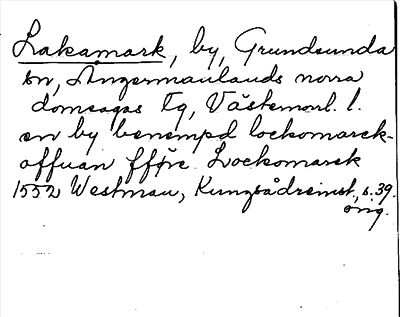 Lakamark, by, Grundsunda
sn, Ångermanlands norra
domsagas tg, Västernorrl. l.
en by benempd lockomarck-
offuan fföre Lockomarck
1552 Westman, Kungsådreinst., s. 39.
öng.